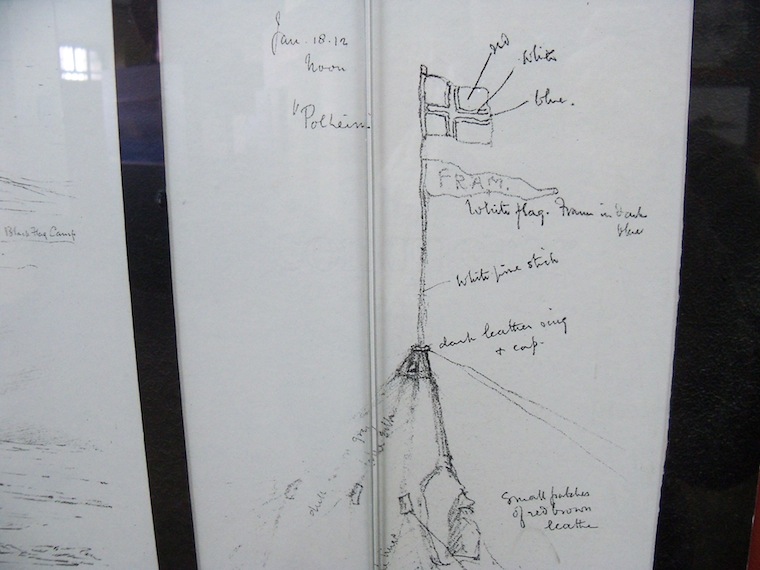 Jan. 18.12
Noon
"Polheim
red
white
blue.
FRAM.
White flag. Fram in Dark
blue
White pine stick
dark leather ring
+ cap.
Black Flag Camp
Small patches
of red brown
leather